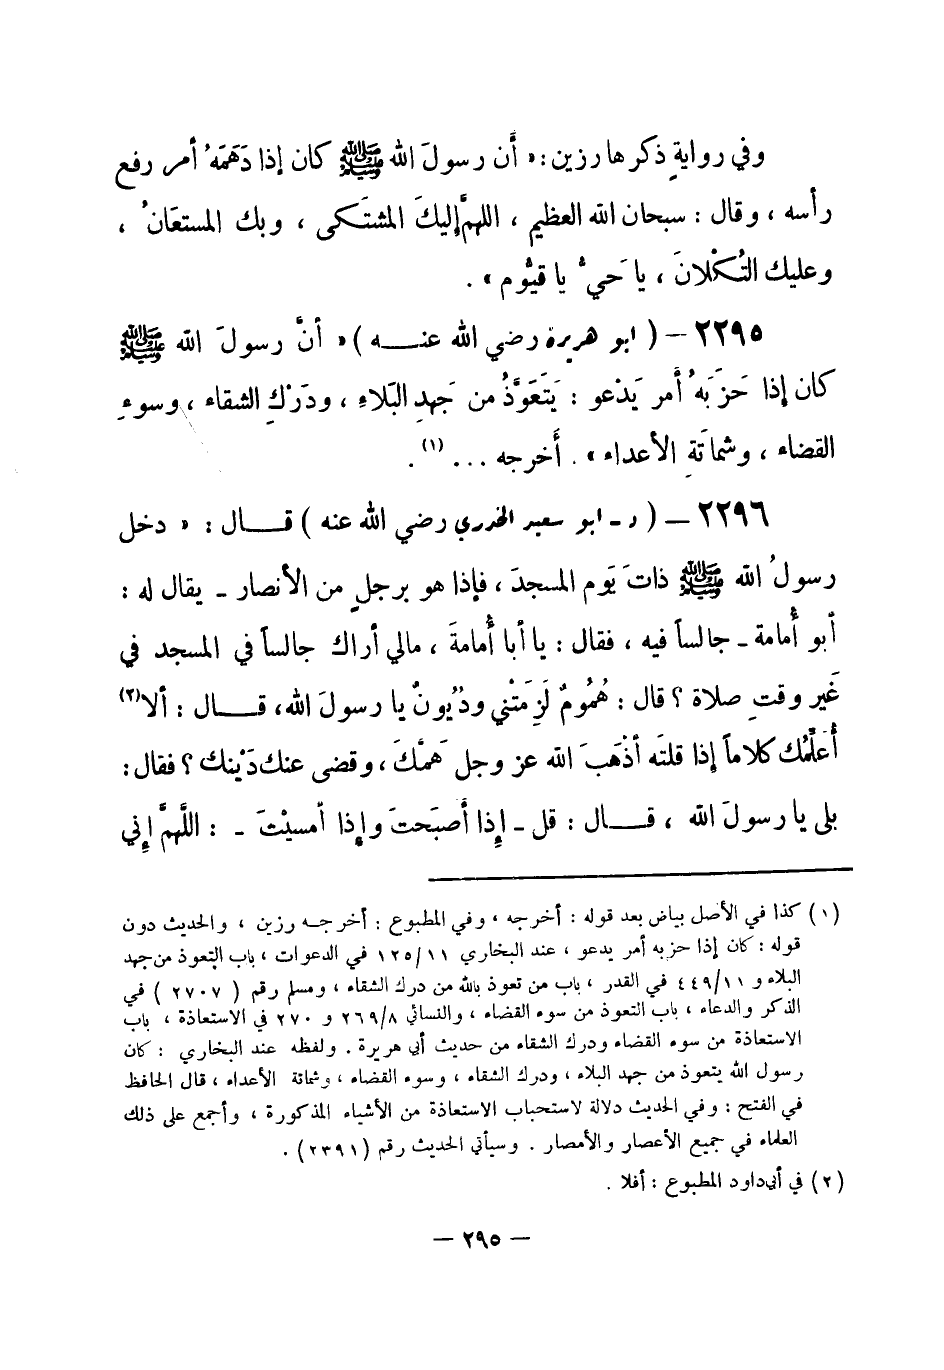 وفي روايةٍ ذكرها رزين : « أَن رسولَ الله ﷺ كان إذا دَهَمَهُ أمر رفع
رأسه ، وقال : سبحان الله العظيم ، اللهمَّ إليكَ المشتَكى ، وبك المستعَانُ ،
وعليك التُكْلانَ ، يا حَيُّ يا قيُّوم » .
٢٢٩٥ – ( ابو هريرة رضي الله عنـــه ) « أنَّ رسولَ الله ﷺ
كان إذا حَزَبَهُ أَمر يَدْعو : يَتَعَوَّذُ من جَهدِ البَلاءِ ، ودَرْكِ الشقاء ، وسوءِ
القضاء ، وشماتَةِ الأعداء » . أَخرجه ... (١) .
٢٢٩٦ – ( د ـ ابو سعيد الخدري رضي الله عنه ) قــال : « دخل
رسولُ الله ﷺ ذاتَ يَوم المسجدَ ، فإذا هو برجلٍ من الأنصار ـ يقال له :
أبو أُمامة ـ جالساً فيه ، فقال : يا أبا أُمامةَ ، مالي أراك جالساً في المسجد في
غَير وقتِ صلاة ؟ قال : هُمُومٌ لَزِمَتْني ودُيونٌ يا رسولَ الله، قــال : ألا(٢)
أُعَلِّمُك كلاماً إذا قلتَه أذْهَبَ الله عز وجل هَمَّكَ ، وقضى عنك دَيْنك ؟ فقال :
بلى يا رسولَ الله ، قــال : قل ـ إِذا أَصبَحتَ وإذا أمسيْتَ ـ : اللَّهمَّ إِني
(١) كذا في الأصل بياض بعد قوله : أخرجه ، وفي المطبوع : أخرجــه رزين ، والحديث دون
قوله : كان إذا حزبه أمر يدعو ، عند البخاري ١٢٥/١١ في الدعوات ، باب التعوذ من جهد
البلاء و ٤٤٩/١١ في القدر ، باب من تعوذ بالله من درك الشقاء ، ومسلم رقم ( ٢٧٠٧ ) في
الذكر والدعاء ، باب التعوذ من سوء القضاء ، والنسائي ٢٦٩/٨ و ٢٧٠ في الاستعاذة ، باب
الاستعاذة من سوء القضاء ودرك الشقاء من حديث أبي هريرة . ولفظه عند البخاري : كان
رسول الله يتعوذ من جهد البلاء ، ودرك الشقاء ، وسوء القضاء ، وشماتة الأعداء ، قال الحافظ
في الفتح : وفي الحديث دلالة لاستحباب الاستعاذة من الأشياء المذكورة ، وأجمع على ذلك
العلماء في جميع الأعصار والأمصار . وسيأتي الحديث رقم (٢٣٩١) .
(٢) في أبي داود المطبوع : أفلا .
– ٢٩٥ –